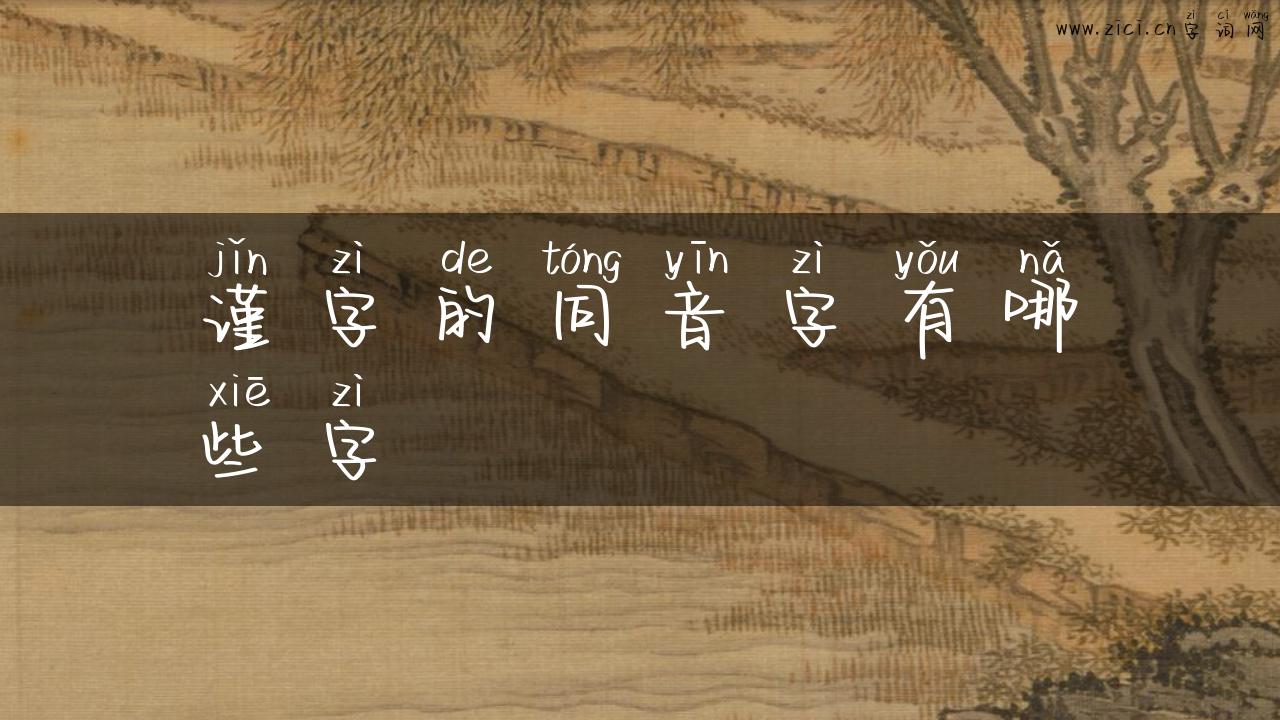 zì cí wǎng
www.zici.cn 字词网
jǐn zì de tóng yīn zì yǒu nǎ
谨字的同音字有哪
xiē zì
些字